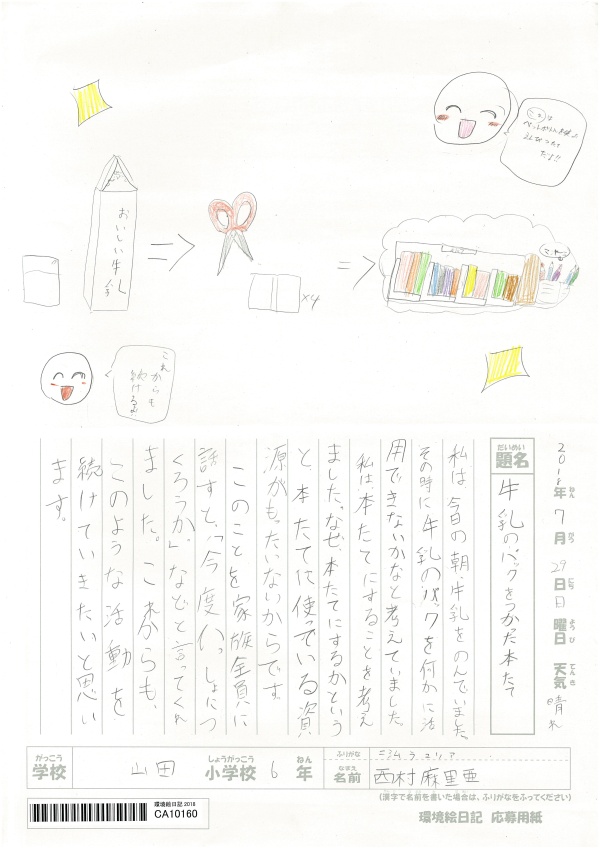 おいしい牛乳
×4
マーカー
これからも
続けるよ
2018年7月29日日曜日 天気晴れ
ねん がつ にち ようび てんき
だいめい
題名
牛乳のパックをつかった本たて
私は、今日の朝、牛乳をのんでいました。
その時に牛乳のパックを何かに活
用できないかなと考えていました。
私は本たてにすることを考え
ました。なぜ、本たてにするかという
と、本たてに使っている資
源がもったいないからです。
このことを家族全員に
話すと、「今度いっしょにつ
くろうか。」などと言ってくれ
ました。これからも、
このような活動を
続けていきたいと思い
ます。
がっこう
学校
山田
しょうがっこう
小学校
6
ねん
年
ふりがな
なまえ
名前
西村麻里亜
(漢字で名前を書いた場合は、ふりがなをふってください)
環境絵日記 2018
CA10160
環境絵日記 応募用紙